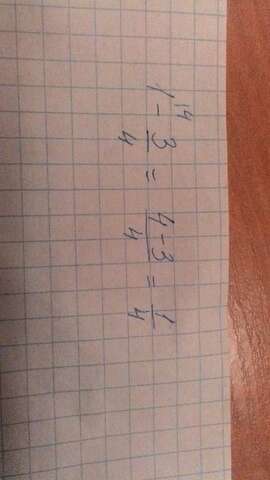 1^{\4} - \frac{3}{4} = \frac{4-3}{4} = \frac{1}{4}